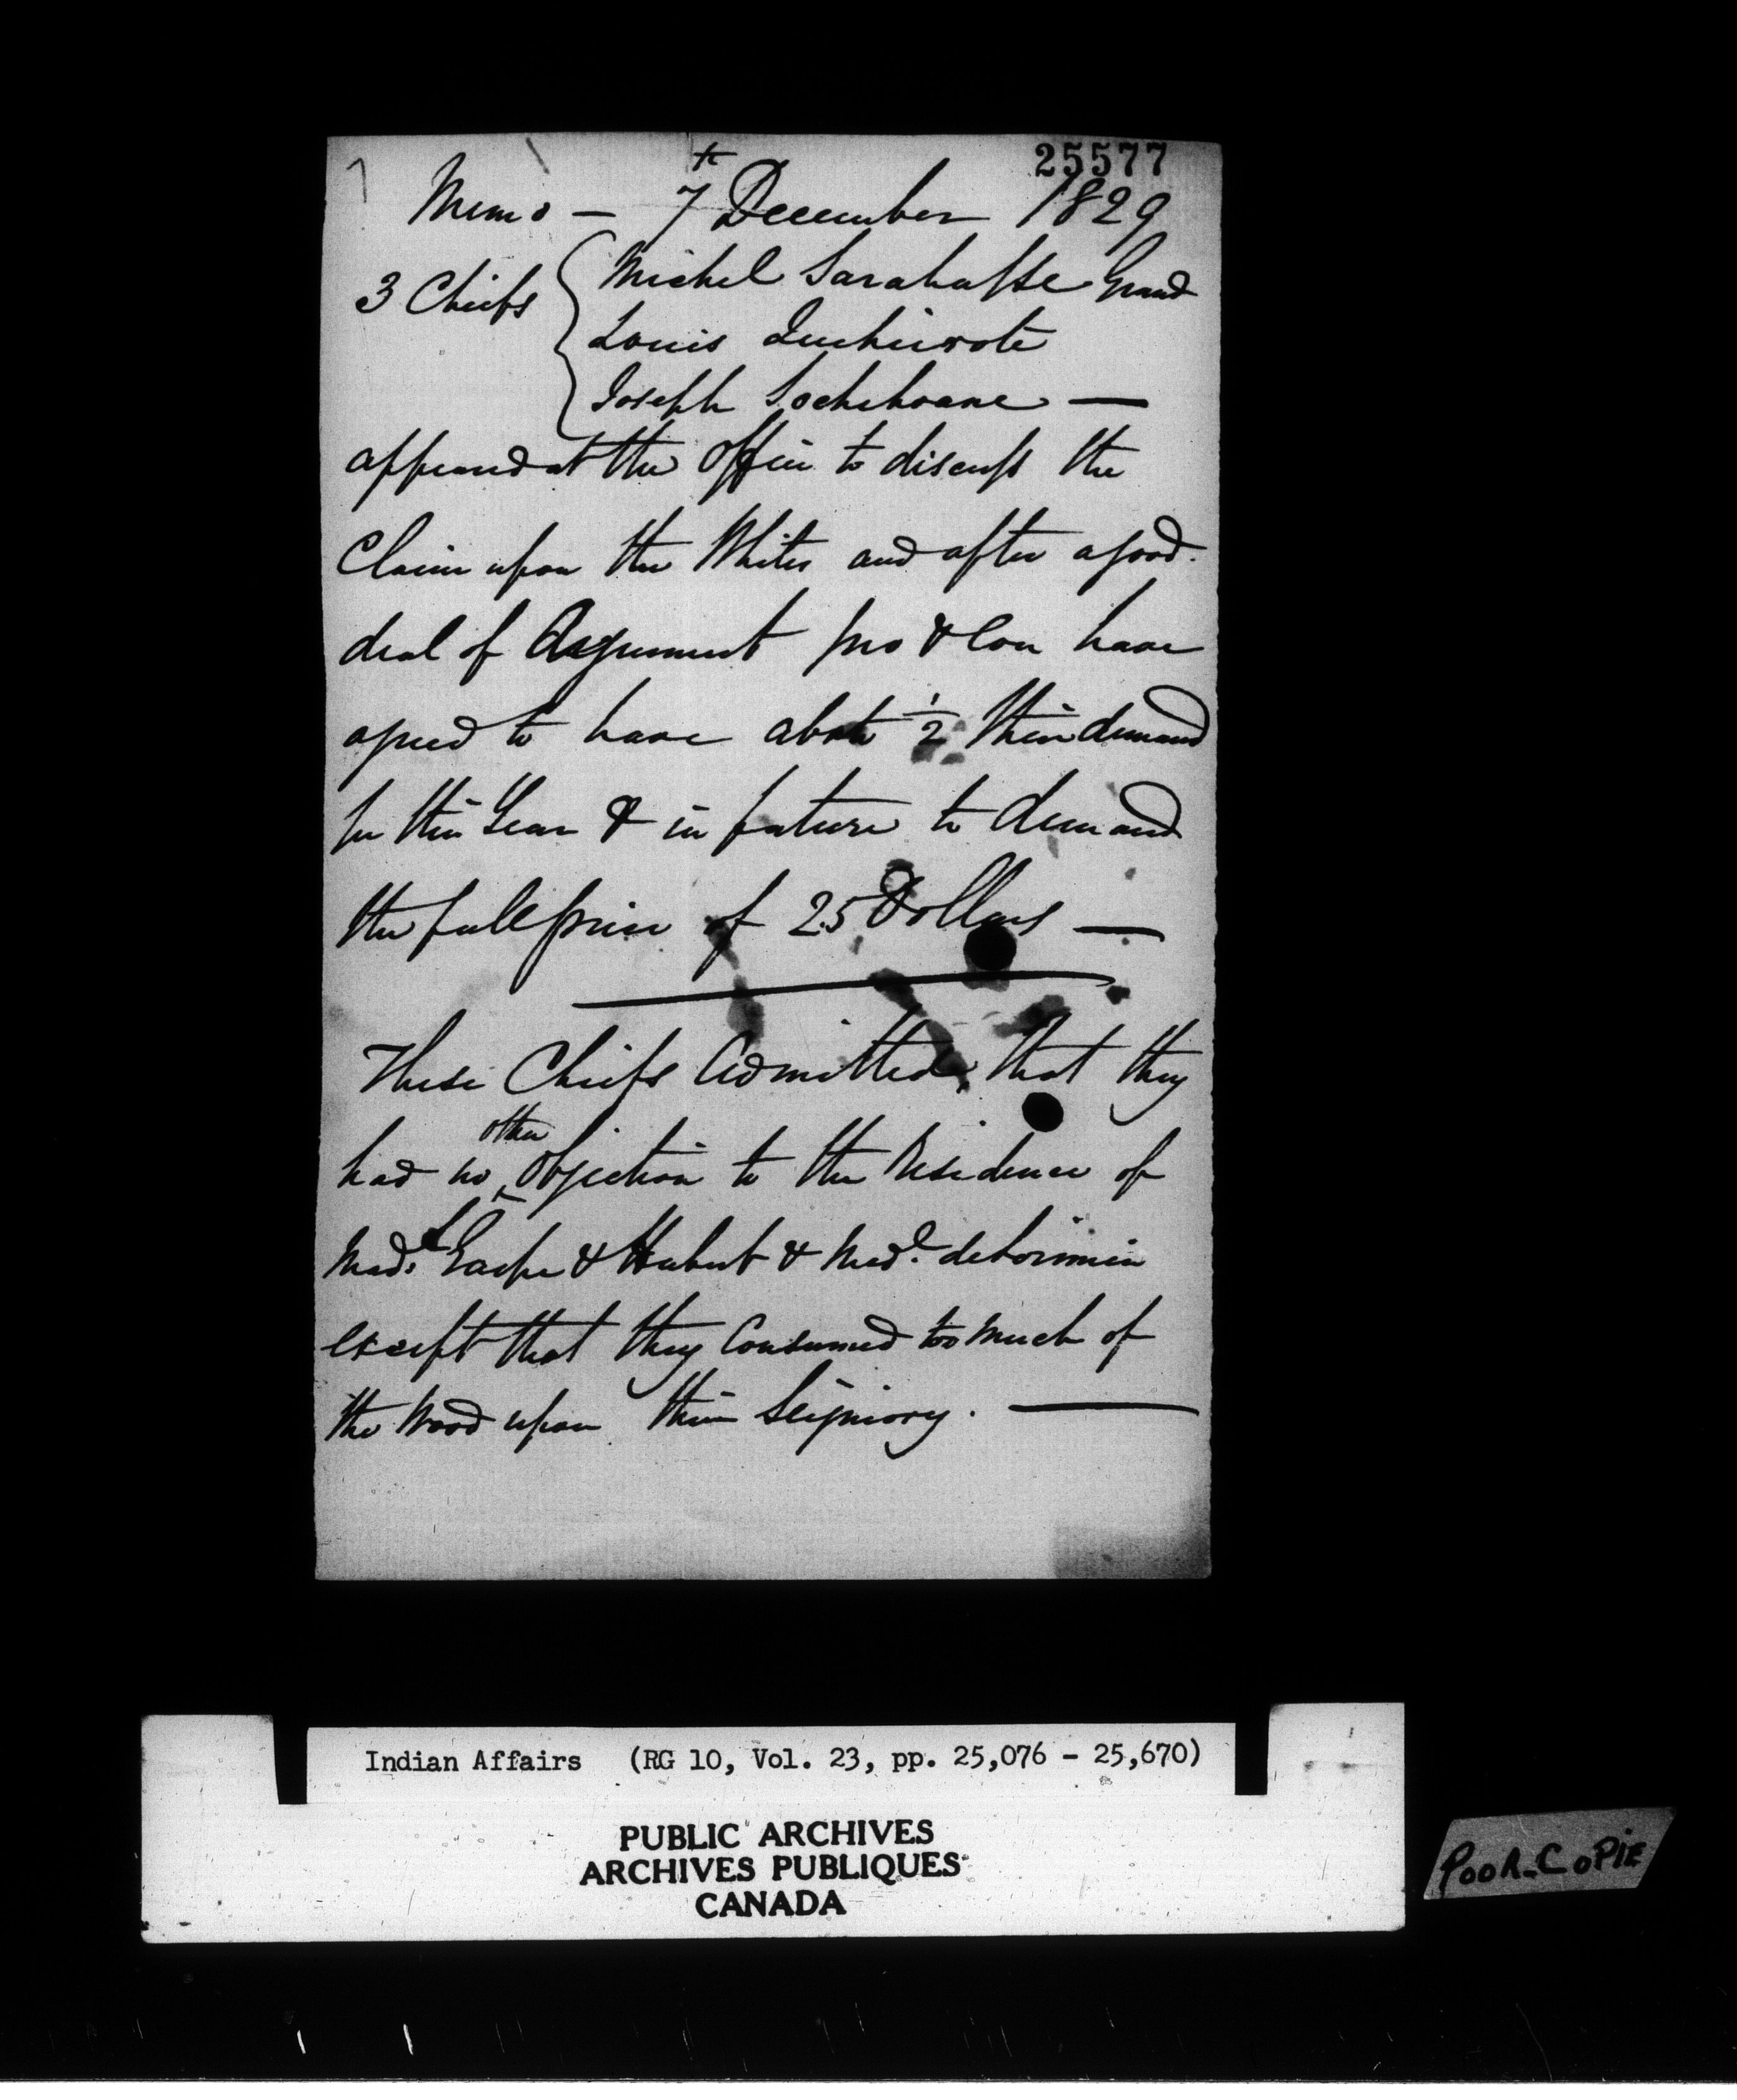 25577
Memo — 7th December 1829
3 Chiefs
Michel Sarahasse Grand
Louis
Joseph
appeared at the Office to discuss the
Claim upon the Whites and after a good
deal of Argument pro & Con have
agreed to have abate 1/2 their demand
for this Year & in future to demand
the full price of 25 Dollars —
These Chiefs Admitted that they
had no other Objection to the Residence of
Mad. & Hubert & Mad.
except that they Consumed too much of
the Wood upon their Seigniory. —
Indian Affairs (RG 10, Vol. 23, pp. 25,076 - 25,670)
PUBLIC ARCHIVES
ARCHIVES PUBLIQUES
CANADA
POOR-COPIE